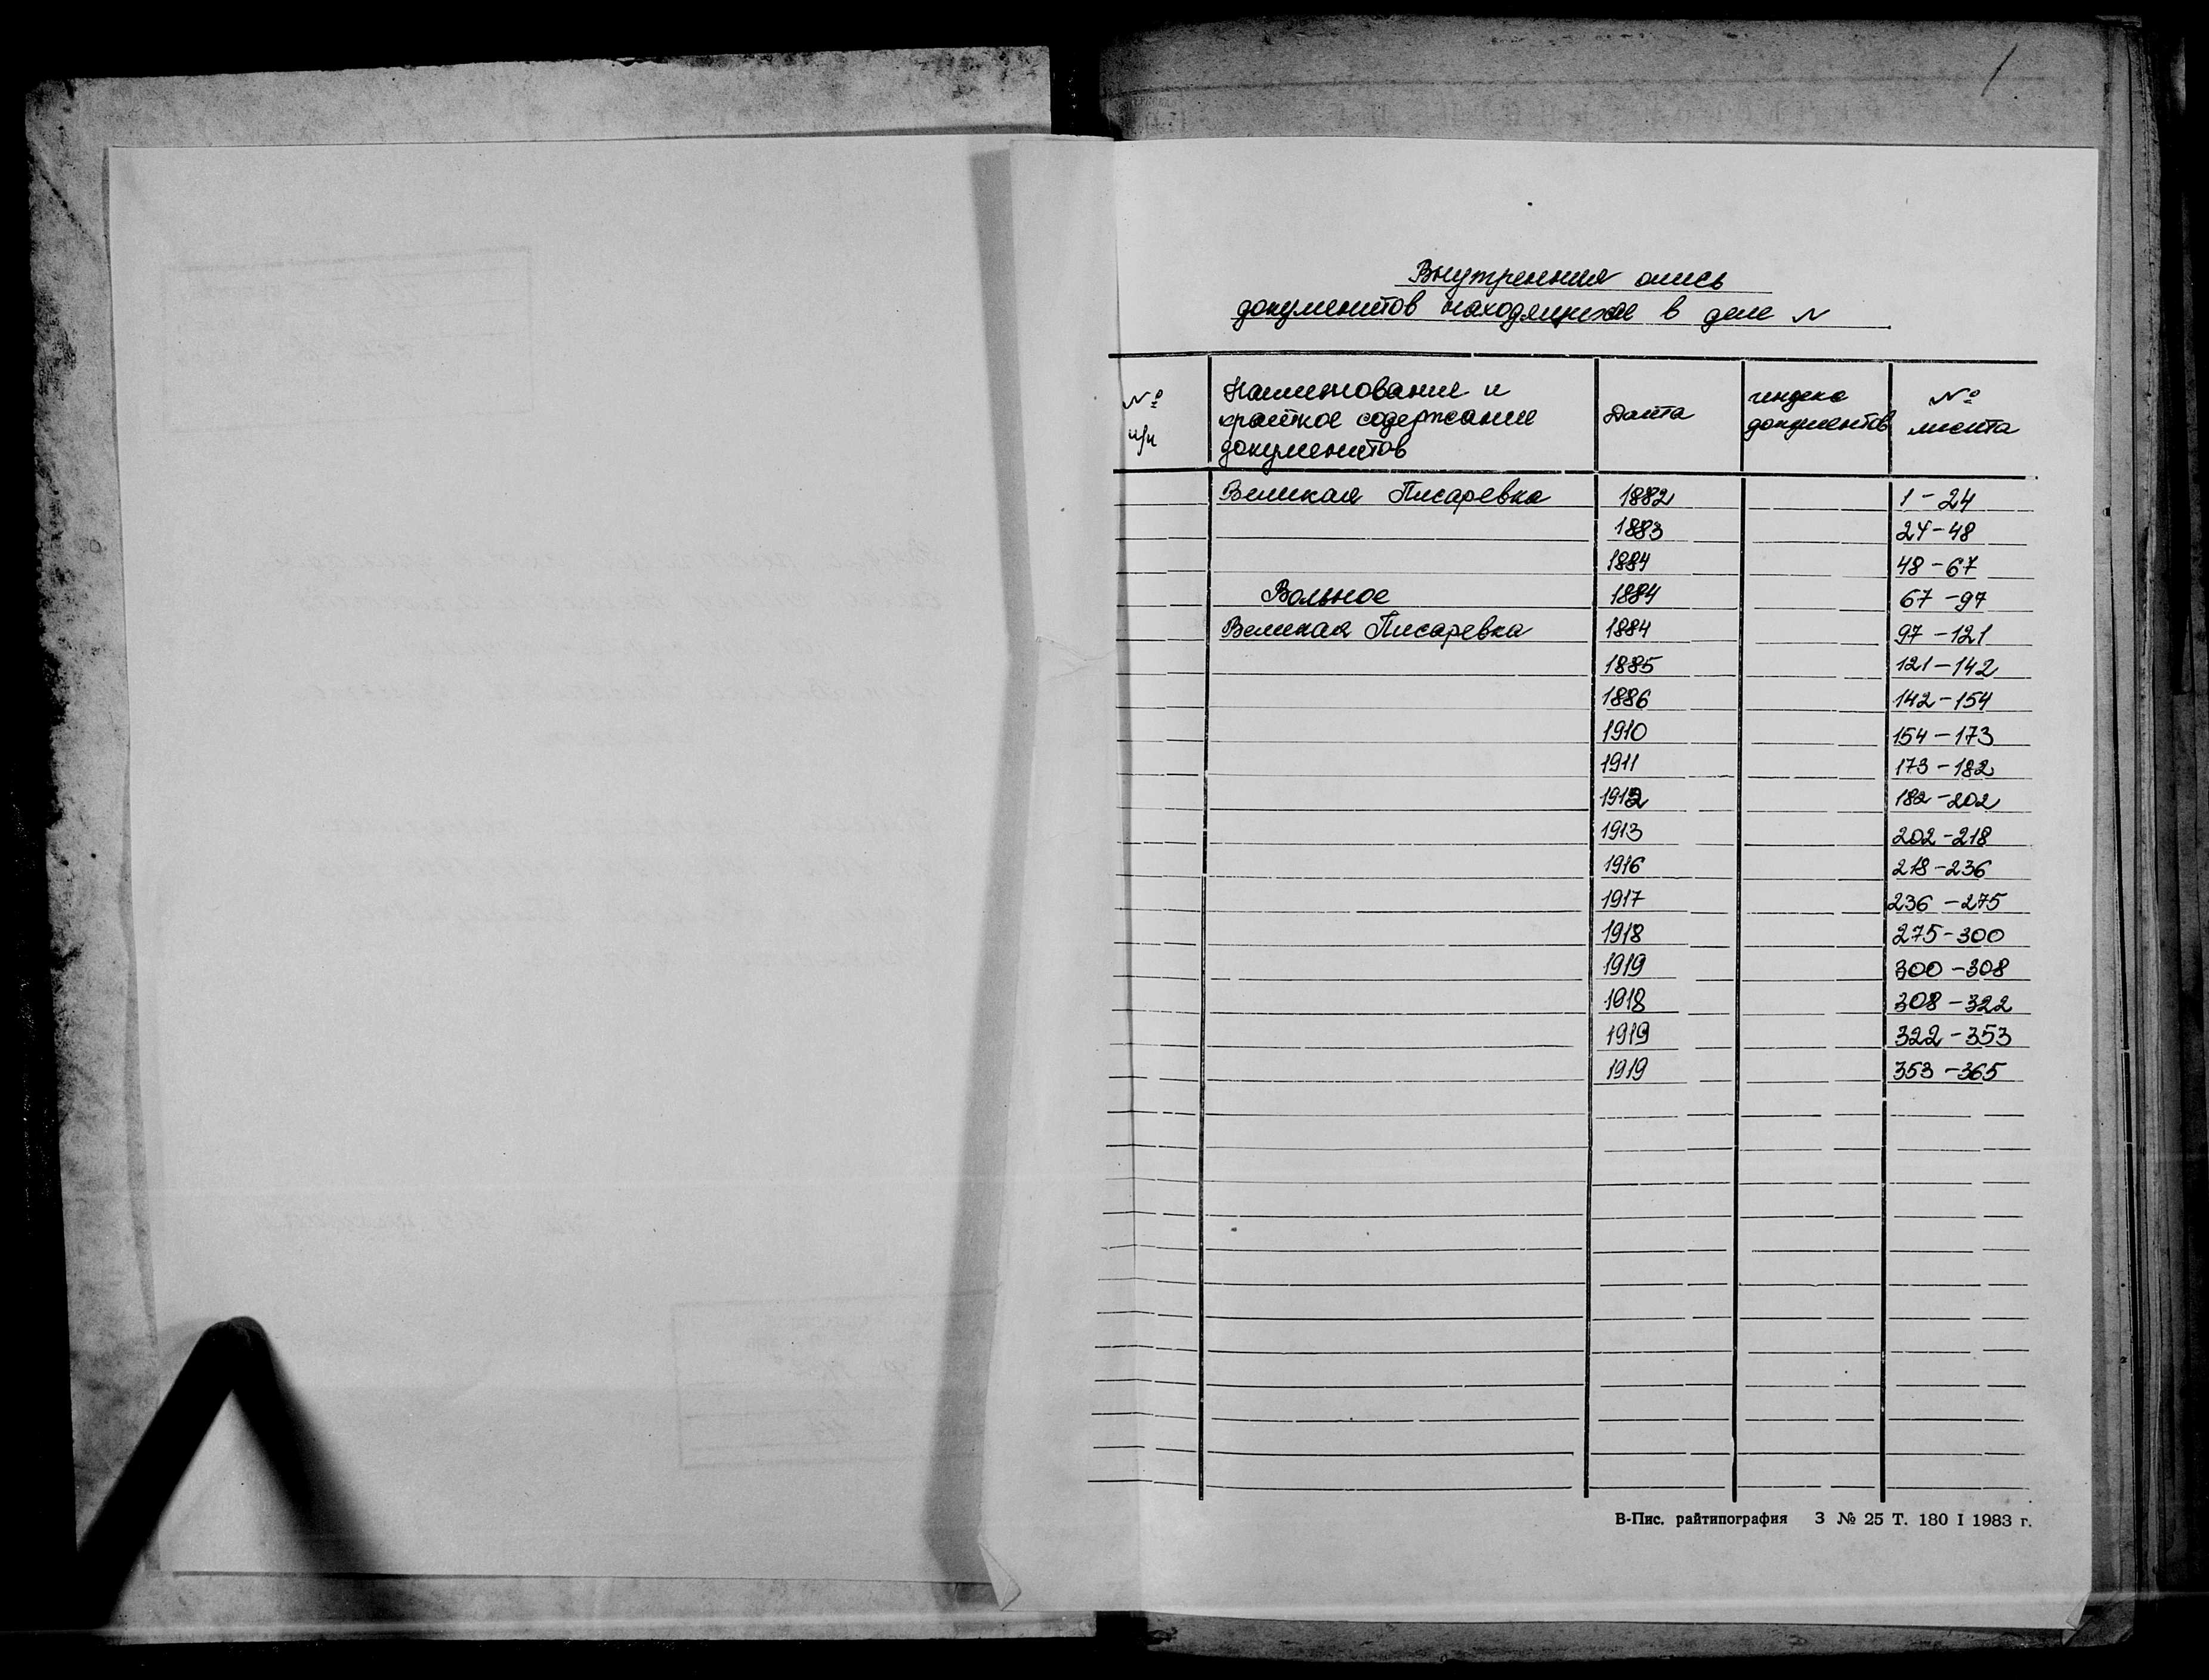 1
Внутренняя опись
документов находящихся в деле N
№ п/п
Наименование и краткое содержание документов
Дата
индекс документов
№ листа
Великая Писаревка 1882 1-24
1883 24-48
1884 48-67
Вольное 1884 67-97
Великая Писаревка 1884 97-121
1885 121-142
1886 142-154
1910 154-173
1911 173-182
1912 182-202
1913 202-218
1916 218-236
1917 236-275
1918 275-300
1919 300-308
1918 308-322
1919 322-353
1919 353-365
В-Пис. райтипография З № 25 Т. 180 I 1983 г.